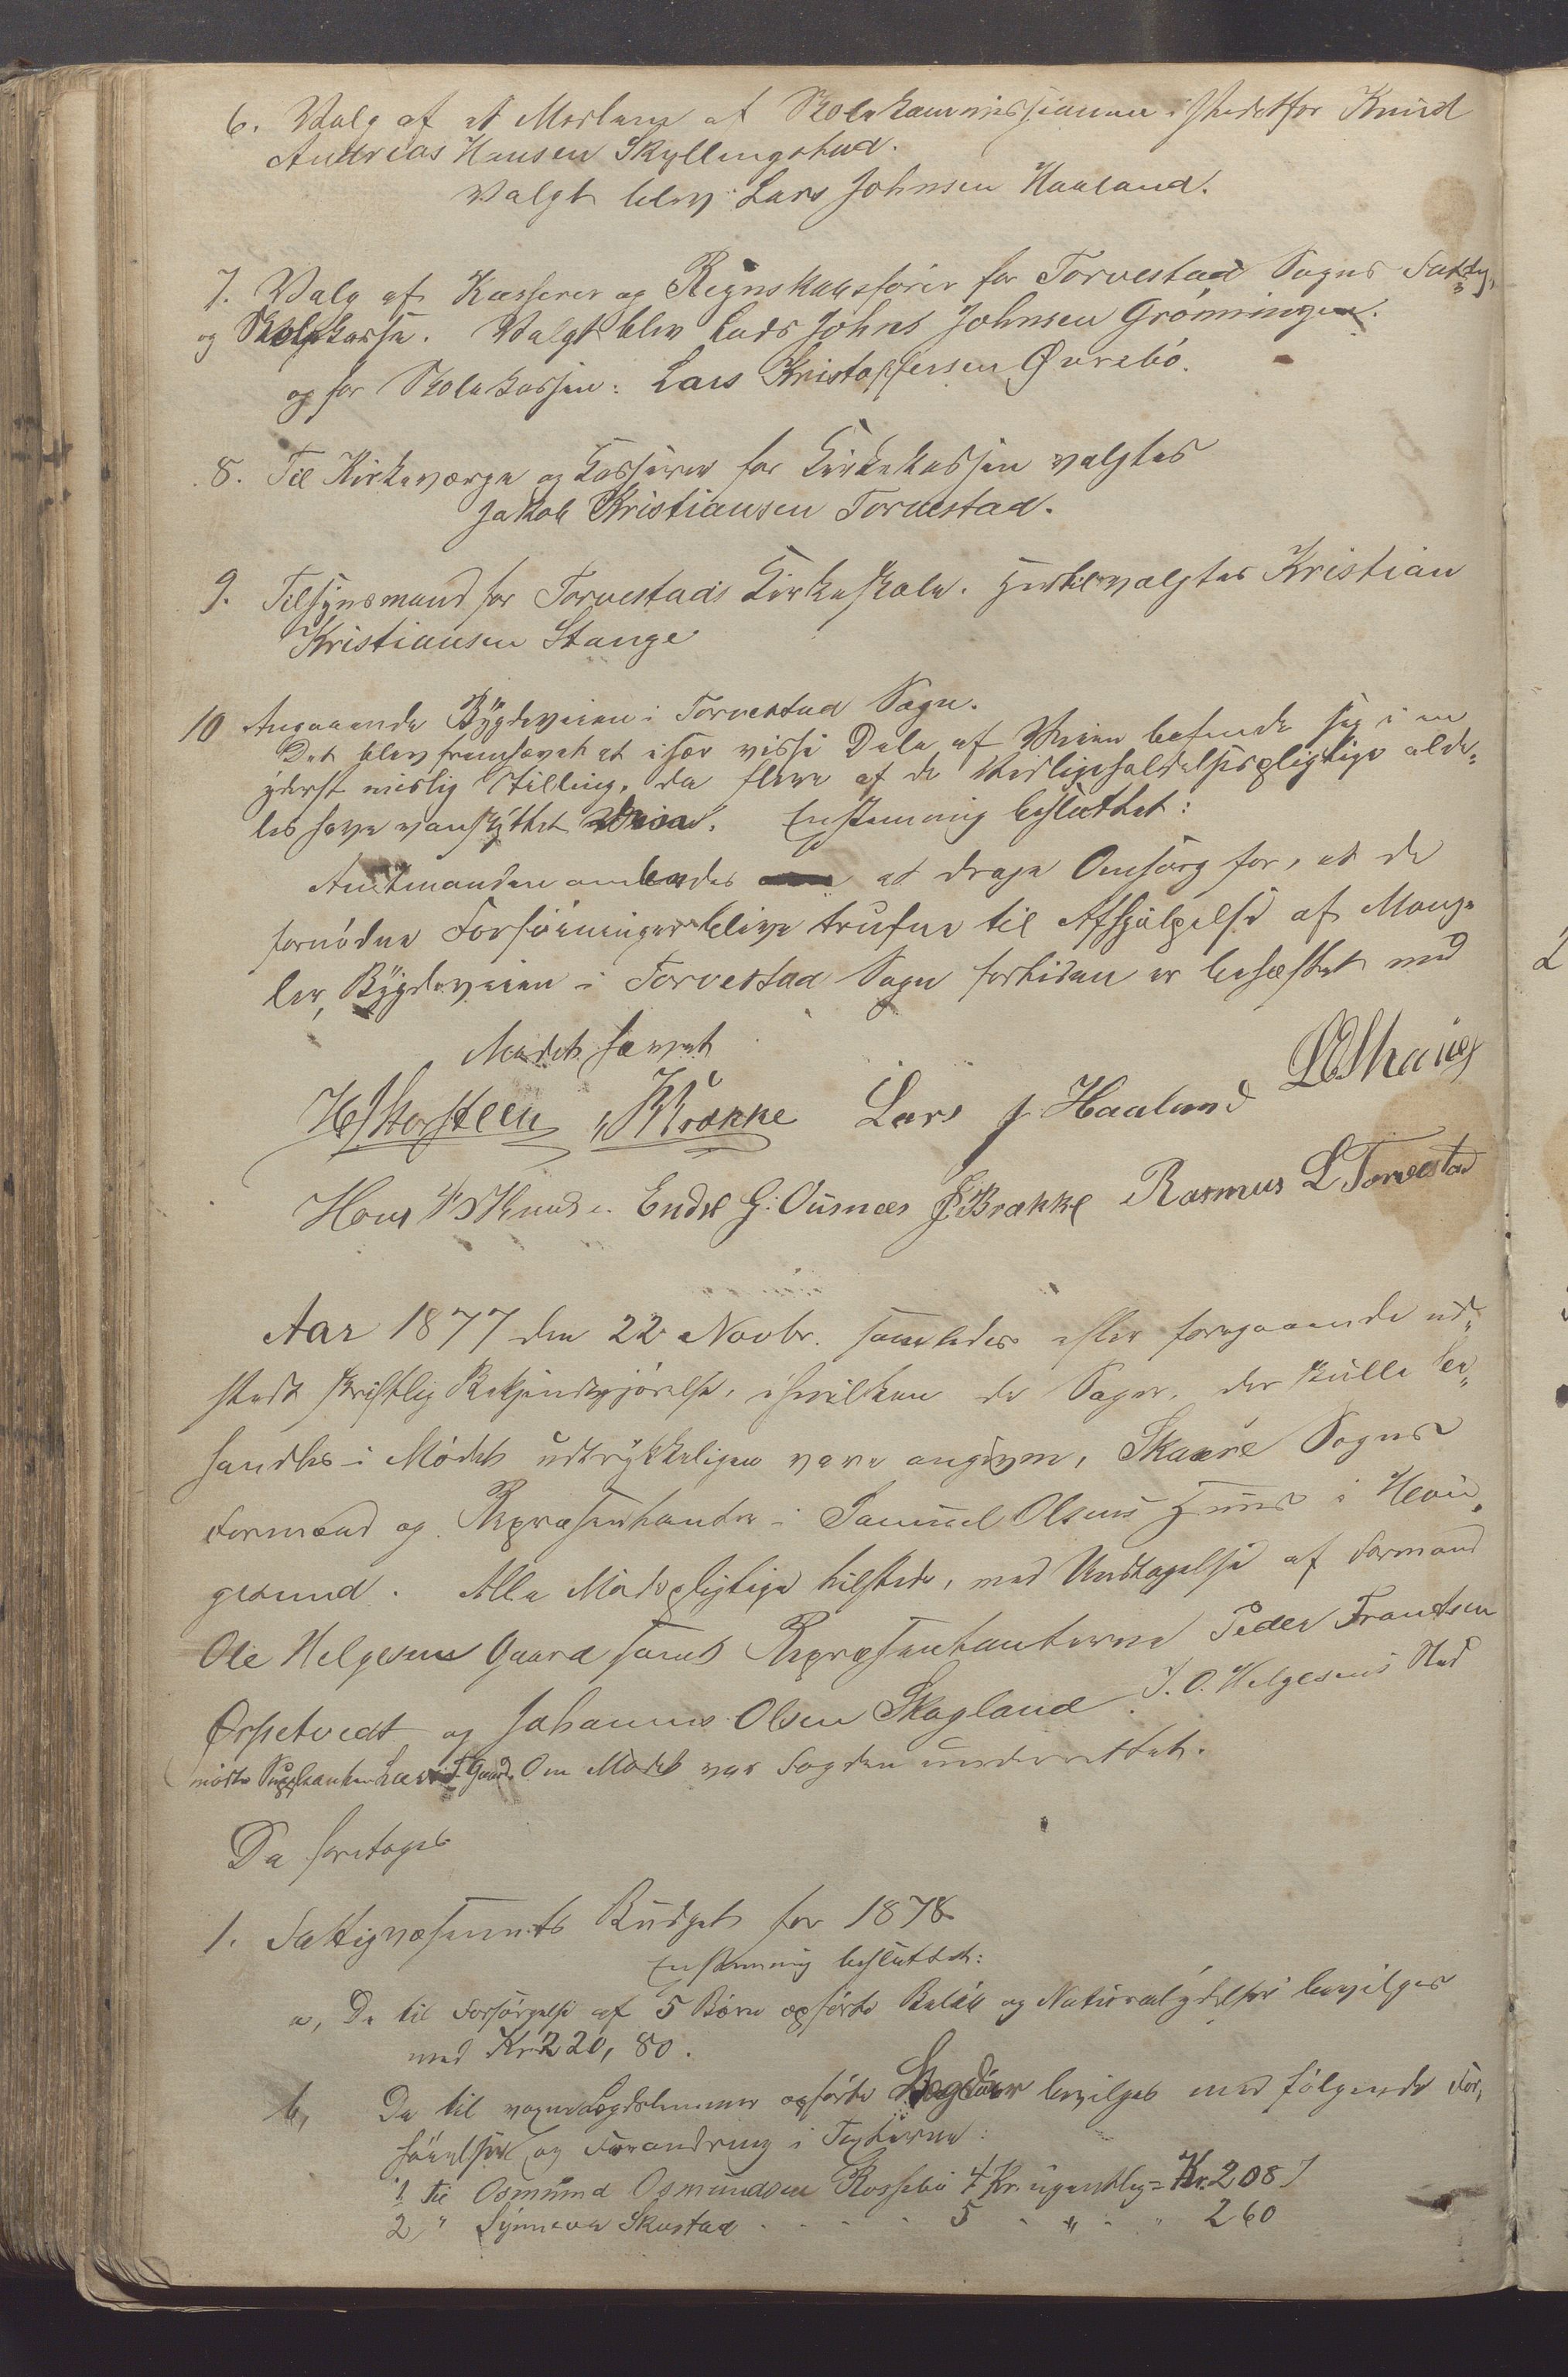 6. Valg af et Medlem af Skolekommissionen istedetfor Knud
Andreas Hansen Skyllingstad.
Valgt blev: Lars Johnsen Haaland.
7. Valg af Kasserer og Regnskabsfører for Torvestad Sogns Fattig-
og Skolekasse. Valgt blev Lads Johns Johnsen Grønningen.
og for Skolekassen: Lars Kristoffersen Øvrebø.
8. Til Kirkeværge og Kasserer for Kirkekassen valgtes
Jakob Kristiansen Torvestad.
9. Tilsynsmand for Torvestads Kirkeskole. Hertil valgtes Kristian
Kristiansen Stange
10 Angaaende Bygdeveien i Torvestad Sogn.
Det blev fremhævet at især visse Dele af Veien befinde sig i en
yderst mislig Stilling, da flere af de Vedligeholdelsespligtige alde-
les have vanskjøttet Veien. Enstemmig besluttet:
Amtmanden anmodes at drage Omsorg for, at de
fornødne Forføininger blive trufne til Afhjælpelse af Mang-
ler, Bygdeveien i Torvestad Sogn fortiden er behæftet med
Mødet hævet
Lars J Haaland
Hans Endre G. Ousnæs Brække Rasmus L Torvestad
Aar 1877 den 22 Novbr. samledes efter foregaaende ud-
stedt skriftlig Bekjendtgjørelse, i hvilken de Sager, der skulle be-
handles i Mødet udtrykkeligen vare angivne, Skaare Sogns
Formænd og Repræsentanter i Samuel Olsens Huus i Hau-
gesund. Alle Mødepligtige tilstede, med Undtagelse af Formand
Ole Helgesen Gaard samt Repræsentanterne Peder Frantsen
Ørpetvedt og Johannes Olsen Skagland. I. O. Helgesens Sted
mødte Suppleanten Gaard. Om Mødet var Fogden underrettet.
Da foretages
1. Fattigvæsenets Budget for 1878
Enstemmig besluttet:
a, De til Forsørgelse af 5 Børn opførte Beløb og Naturalydelser bevilges
med Kr. 220,80.
b, De til voxne Lægdslemmer opførte bevilges med følgende For-
høielser og Forandring i Taxterne:
1, til Osmund Osmundsen Rossebø 4 Kr. ugentlig = Kr. 208
2, " Synneva Skustad . . . . 5 . " . " 260